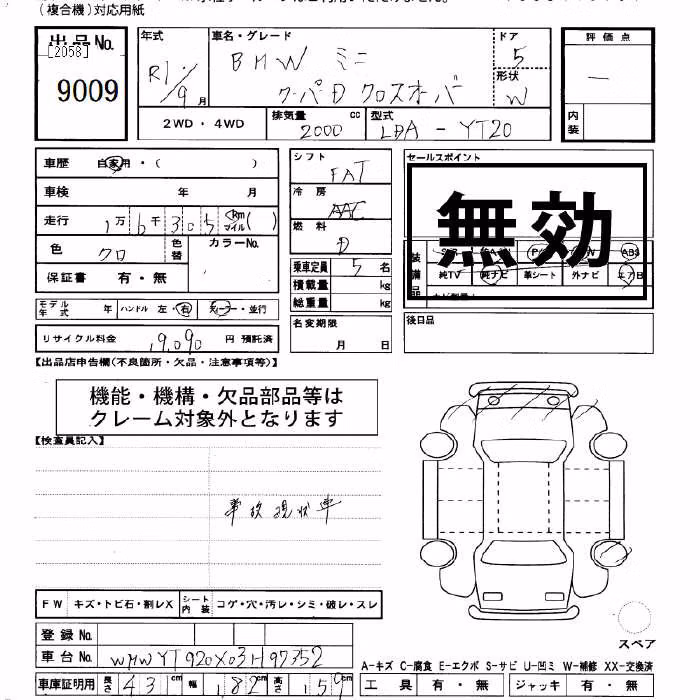 (複合機)対応用紙
出品No.
[2058]
9009
年式
R1/9月
車名・グレード
BMW ミニ
クーパD クロスオーバ
ドア
5
形状
W
評価点
—
内装
2WD・4WD
排気量
2000 cc
型式
LDA - YT20
車歴 自家用・( )
車検 年 月
走行 1万6千305 Km マイル ( )
色 クロ
色替
カラーNo.
保証書 有・無
モデル年式 年
ハンドル 左・右
ディーラー・並行
リサイクル料金 19,090 円 預託済
シフト
FAT
冷房
AAC
燃料
D
乗車定員 5名
積載量 kg
総重量 kg
名変期限
月 日
セールスポイント
無効
装備品
ABS
純TV
純ナビ
革シート
外ナビ
エアB
後日品
【出品店申告欄(不良箇所・欠品・注意事項等)】
機能・機構・欠品部品等は
クレーム対象外となります
【検査員記入】
事故現状車
FW キズ・トビ石・割レX
シート内装 コゲ・穴・汚レ・シミ・破レ・スレ
登録No.
車台No. WMWYT920X03H97352
車庫証明用 長さ 43 cm 幅 182 cm 高さ 159
スペア
A-キズ C-腐食 E-エクボ S-サビ U-凹ミ W-補修 XX-交換済
工具 有・無
ジャッキ 有・無